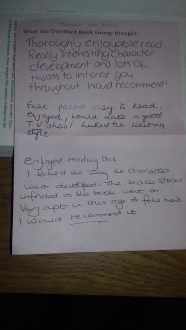 What the Derwent Book Group thought:
Thoroughly enjoyable read
Really interesting character
development and lots of
twists to interest you
throughout. Would recommend!
Fast paced easy to read,
Enjoyed, would make a good
T.V show! Liked the writing
style
Enjoyed reading this
I liked the way the characters
were developed. The back stories
unfolded as the book went on.
Very apt in this age of fake news
I would recommend it